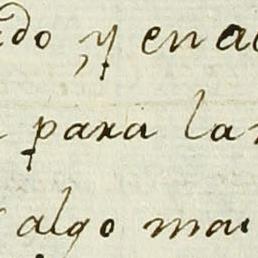 do, y en a
para la
algo mai